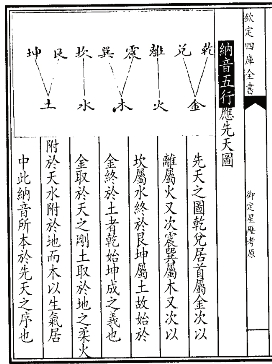 欽定四庫全書
御定星歷考原
納音五行應先天圖
乾 兌 離 震 巽 坎 艮 坤
金 火 木 水 土
先天之圖乾兌居首屬金次以
離屬火又次震巽屬木又次以
坎屬水終於艮坤屬土故始於
金終於土者乾始坤成之義也
金取於天之剛土取於地之柔火
附於天水附於地而木以生氣居
中此納音所本於先天之序也